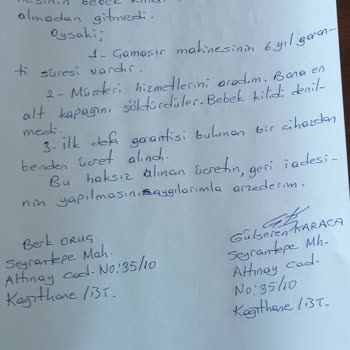 almadan gitmedi.
Oysaki;
1- Çamaşır makinesinin 6 yıl garan-
ti süresi vardır.
2- Müşteri hizmetlerini aradım. Bana en
alt kapağını söktürdüler. Bebek kilidi denil-
medi.
3- ilk defa garantisi bulunan bir cihazdan
benden ücret alındı.
Bu haksız alınan ücretin, geri iadesi-
nin yapılmasını saygılarımla arzederim.
Berk ORUÇ
Seyrantepe Mah.
Altınay cad. No:35/10
Kağıthane / İST.
Gülseren KARACA
Seyrantepe Mh.
Altınay Cad.
No:35/10
Kağıthane / İST.